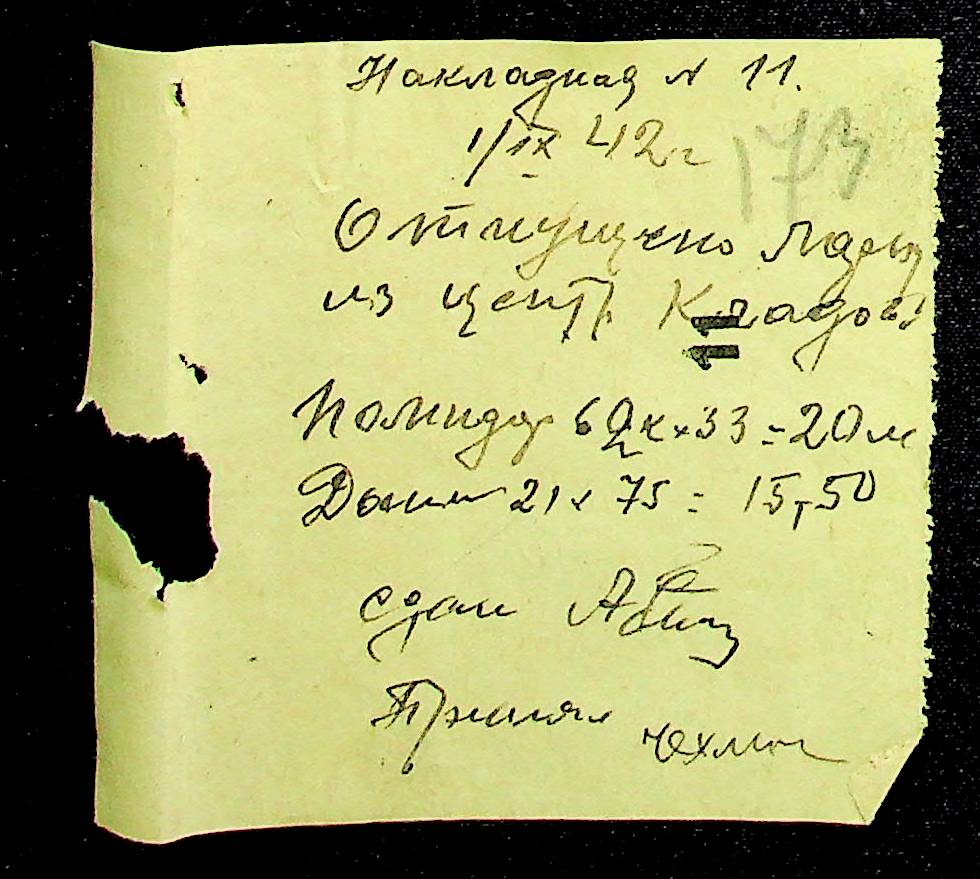 Накладная № 11.
1/IX 42 г
173
Отпущено
из центр Кладов
Помидор 60 к × 33 = 20 м
21 × 75 = 15,50
сдал
Принял